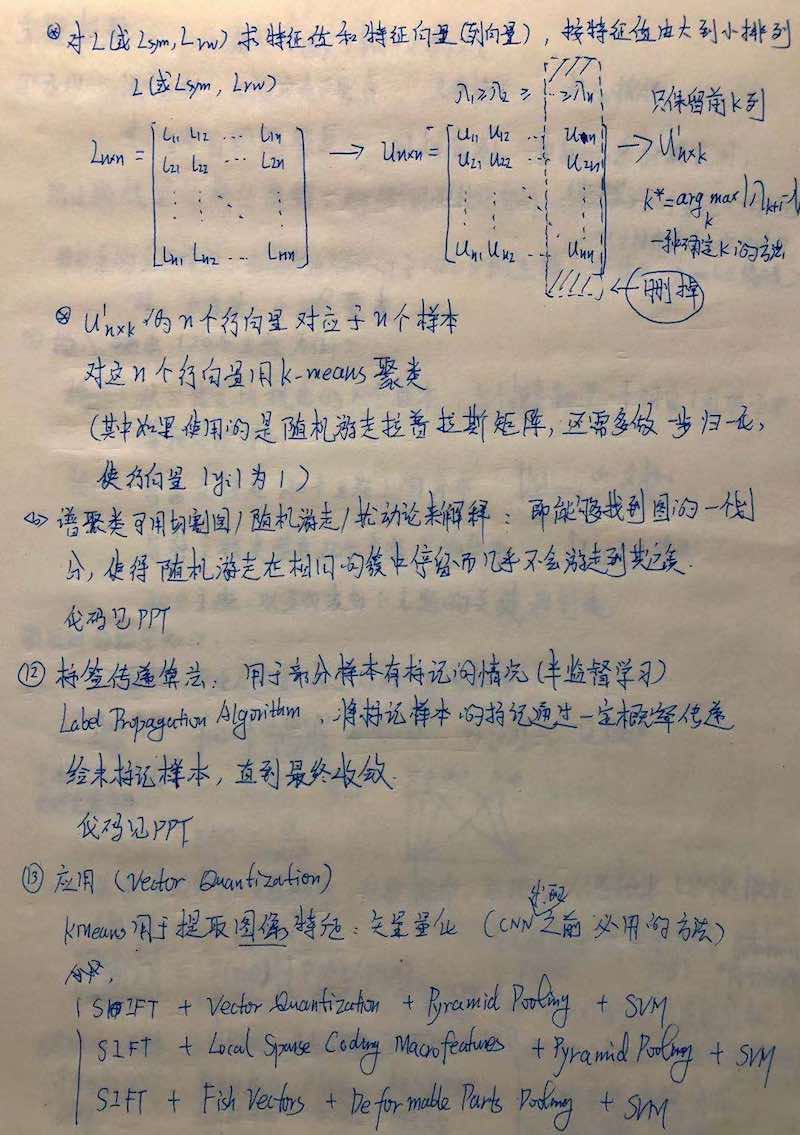 ⊗ 对L(或Lsym, Lrw)求特征值和特征向量(列向量), 按特征值由大到小排列
L(或Lsym, Lrw) λ1≥λ2≥ … ≥λn 只保留前k列
Ln×n = [L11 L12 … L1n → Un×n = [U11 U12 … U1n → U'n×k
L21 L22 … L2n U21 U22 … U2n
k* = arg max k |λk+1-λ
Ln1 Ln2 … Lnn] Un1 Un2 … Unn] 一种确定k的方法
← 删掉
⊗ U'n×k 的n个行向量对应于n个样本
对这n个行向量用k-means聚类
(其中如果使用的是随机游走拉普拉斯矩阵, 还需多做一步归一化,
使行向量|yi|为1)
<6> 谱聚类可用切割图/随机游走/扰动论来解释: 即能够找到图的一个划
分, 使得随机游走在相同的簇中停留而几乎不会游走到其它簇.
代码见PPT
⑫ 标签传递算法: 用于部分样本有标记的情况(半监督学习)
Label Propagation Algorithm, 将标记样本的标记通过一定概率传递
给未标记样本, 直到最终收敛.
代码见PPT
⑬ 应用 (Vector Quantization)
kmeans用于提取图像特征: 矢量量化 (CNN之前必用的方法)
SIFT + Vector Quantization + Pyramid Pooling + SVM
SIFT + Local Sparse Coding Macrofeatures + Pyramid Pooling + SVM
SIFT + Fish Vectors + Deformable Parts Pooling + SVM